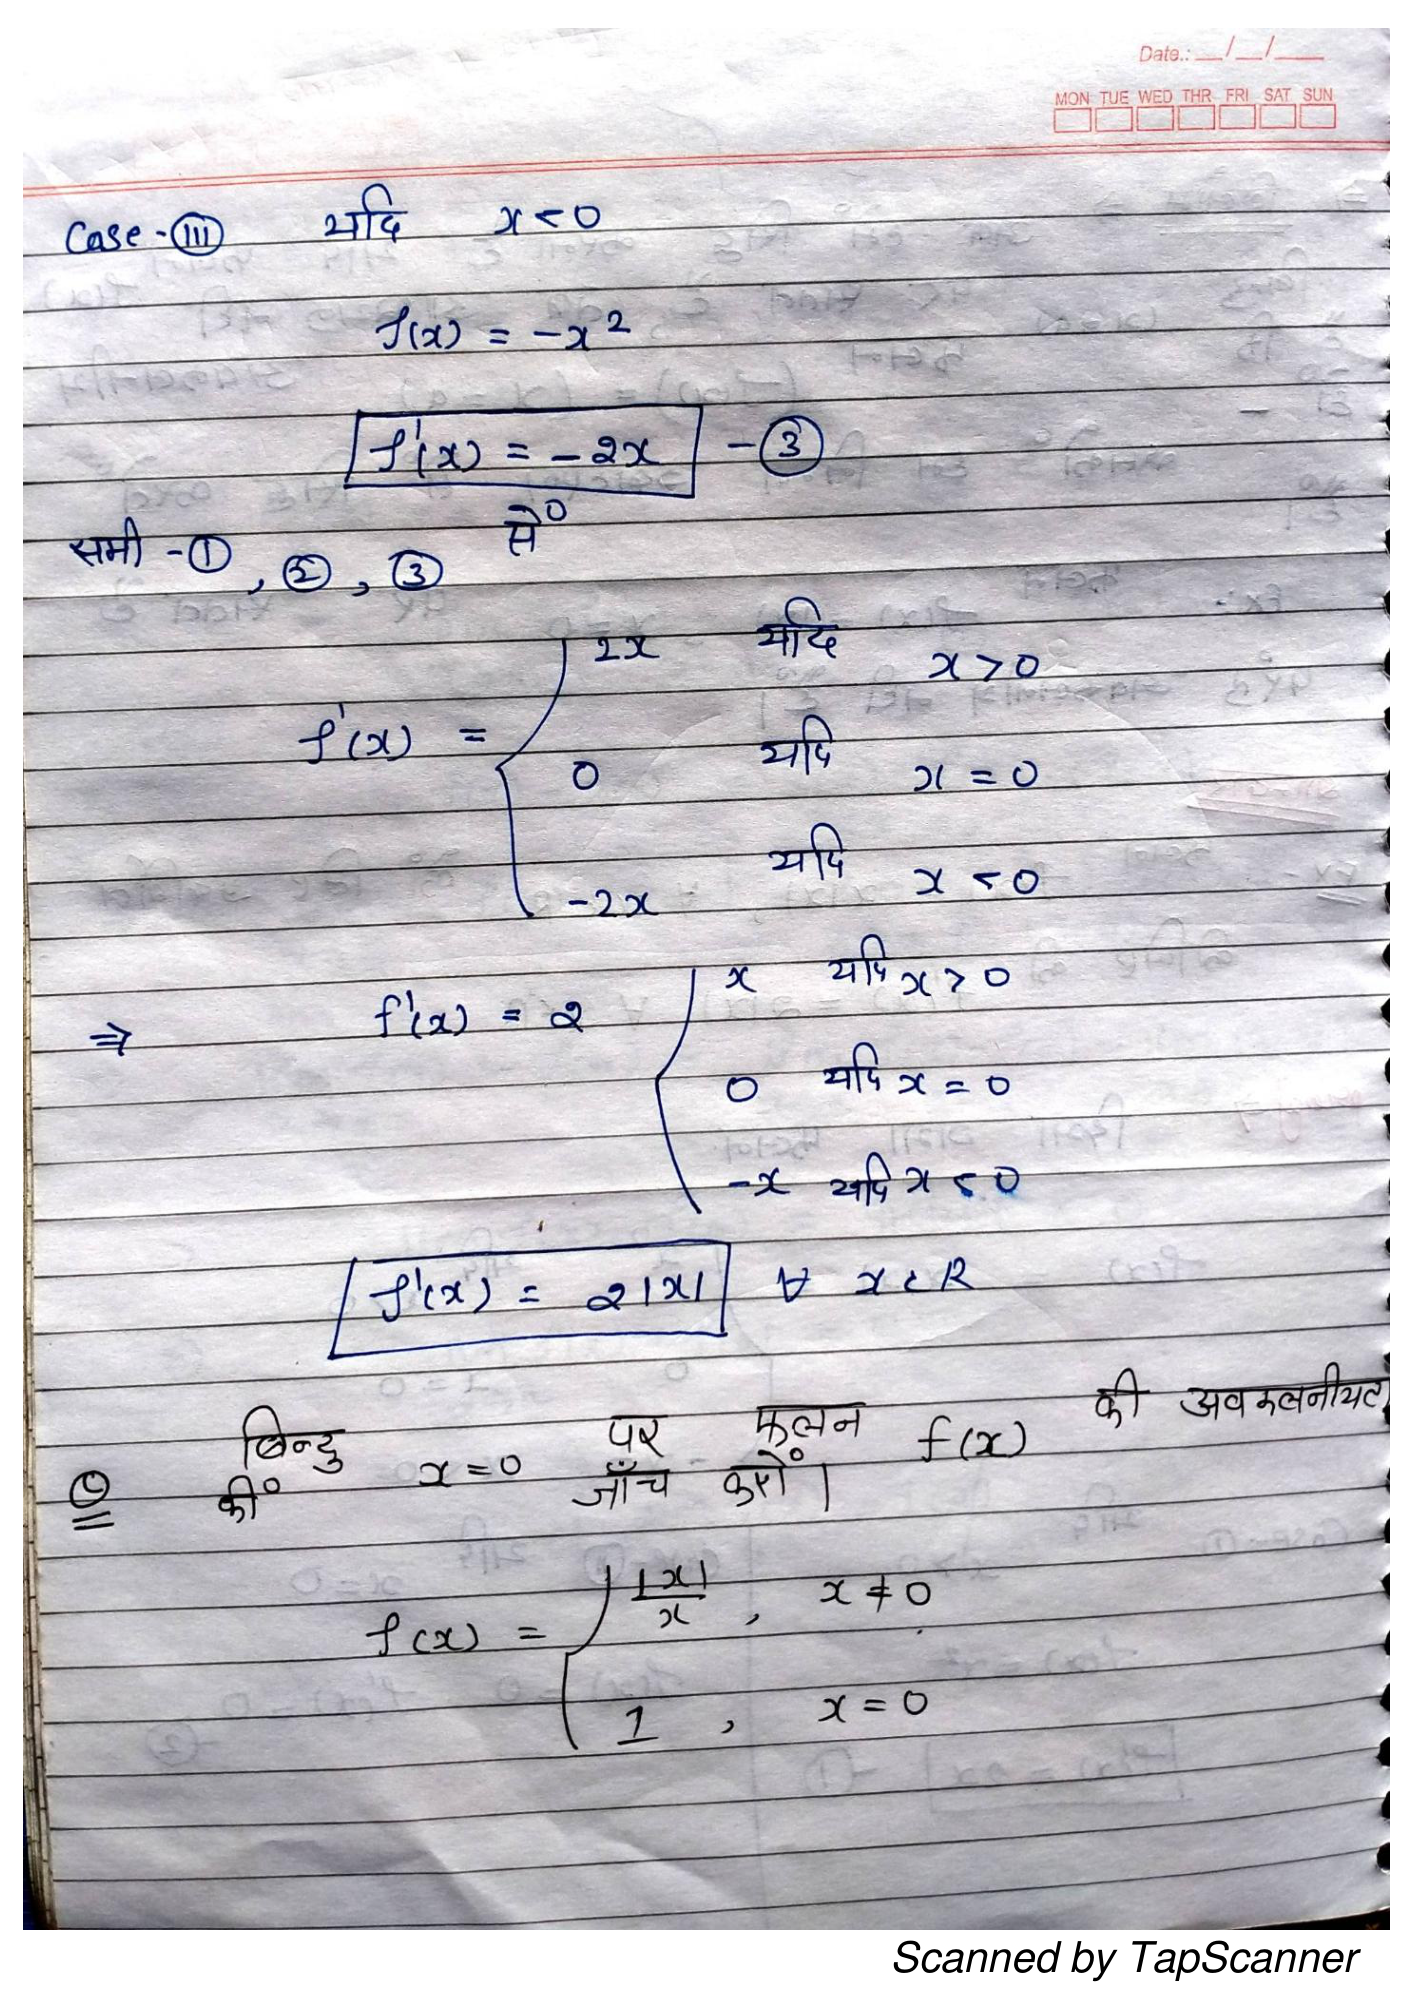 Date.: __/__/__
MON TUE WED THR FRI SAT SUN
Case-(III) यदि x < 0
f(x) = -x²
f'(x) = -2x -(3)
समी -(1), (2), (3) से
f'(x) = { 2x यदि x > 0
0 यदि x = 0
-2x यदि x < 0
⇒ f'(x) = 2 { x यदि x > 0
0 यदि x = 0
-x यदि x < 0
f'(x) = 2|x| ∀ x ∈ R
Q बिन्दु x = 0 पर फलन f(x) की अवकलनीयता
की जाँच करों।
f(x) = { |x|/x , x ≠ 0
1 , x = 0
Scanned by TapScanner